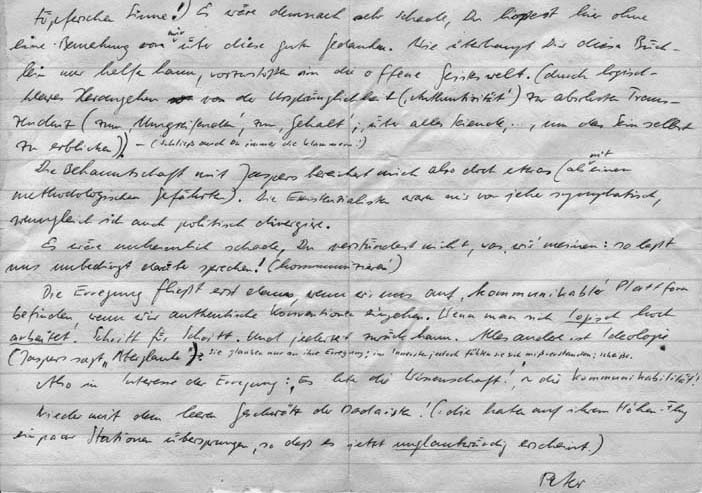 töpferischen Sinne!) Es wäre demnach sehr schade, Du liest hier ohne
eine Bemerkung von mir über diese gute Gedanken. Wie überhaupt Dir dieses Büch-
lein nur helfen kann, vorzustoßen in die offene Geisteswelt. (durch logisch-
klares Herangehen von der Ursprünglichkeit (‚Authentizität') zur absoluten Trans-
zendenz (zum ‚Umgreifenden', zum ‚Gehalt', über alles Seiende, ..., um das Sein selbst
zu erblicken)) – (schließ auch Du immer die Klammern!)
Die Bekanntschaft mit Jaspers bereichert mich also doch etwas (als mit einen
methodologischen Gefährten). Die Existentialisten waren mir von jeher symphatisch,
wenngleich ich auch politisch divergire.
Es wäre unheimlich schade, Du verstündest nicht, was wir meinen: so laßt
uns unbedingt darüber sprechen! (kommunizieren)
Die Erregung fließt erst dann, wenn wir uns auf ‚kommunikabler' Plattform
befinden, wenn wir authentische Konventionen eingehen. Wenn man sich logisch hoch
arbeitet! Schritt für Schritt. Und jederzeit zurück kann. Alles andere ist Ideologie
(Jaspers sagt „Aberglaube"): Sie glauben nur an ihre Erregung; im Innersten jedoch fühlen sie sich mißverstanden;
Also im Interesse der Erregung: „Es lebe die Wissenschaft!", die Kommunikabilität!
Nieder mit dem leeren Geschwätz der Dadaisten! (: die haben auf ihrem Höhen-Flug
ein paar Stationen übersprungen, so daß es jetzt unglaubwürdig erscheint.)
Peter